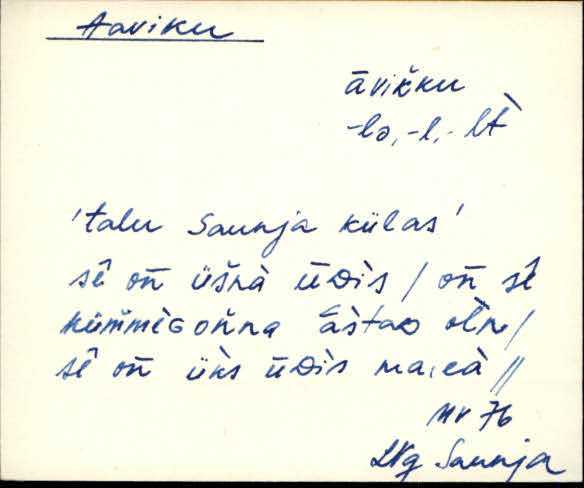 Aaviku
āvikku
-lə, -l, -lt
'talu Saunja külas'
sē on üšnà ūᴅ̀is / on sē
kümmèɢonna āstaᴅ oln /
sē on üks ūᴅis maja //
MV 76
LNg Saunja